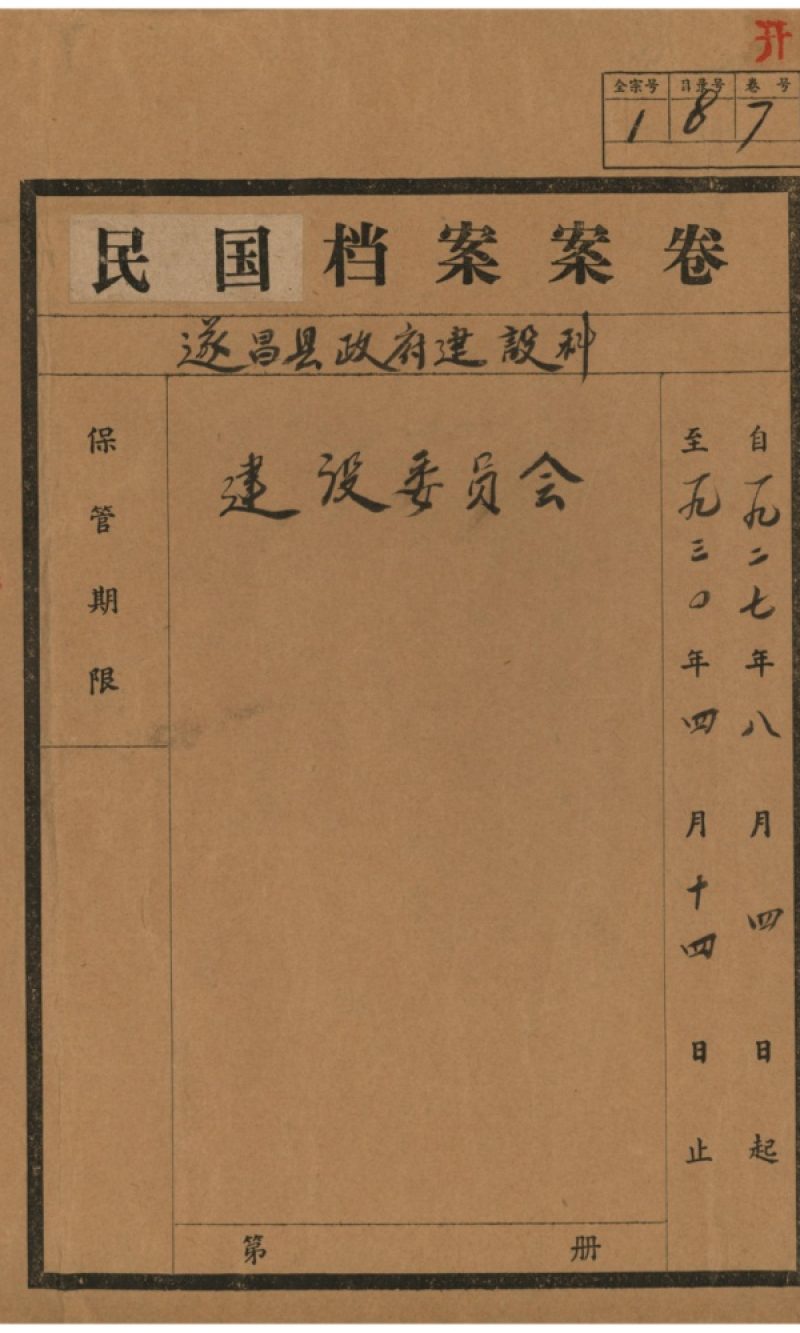 开
全宗号 目录号 卷号
1 8 7
民国档案案卷
遂昌县政府建設科
建设委员会
自一九二七年八月四日起
至一九三〇年四月十四日止
保管期限
第 册